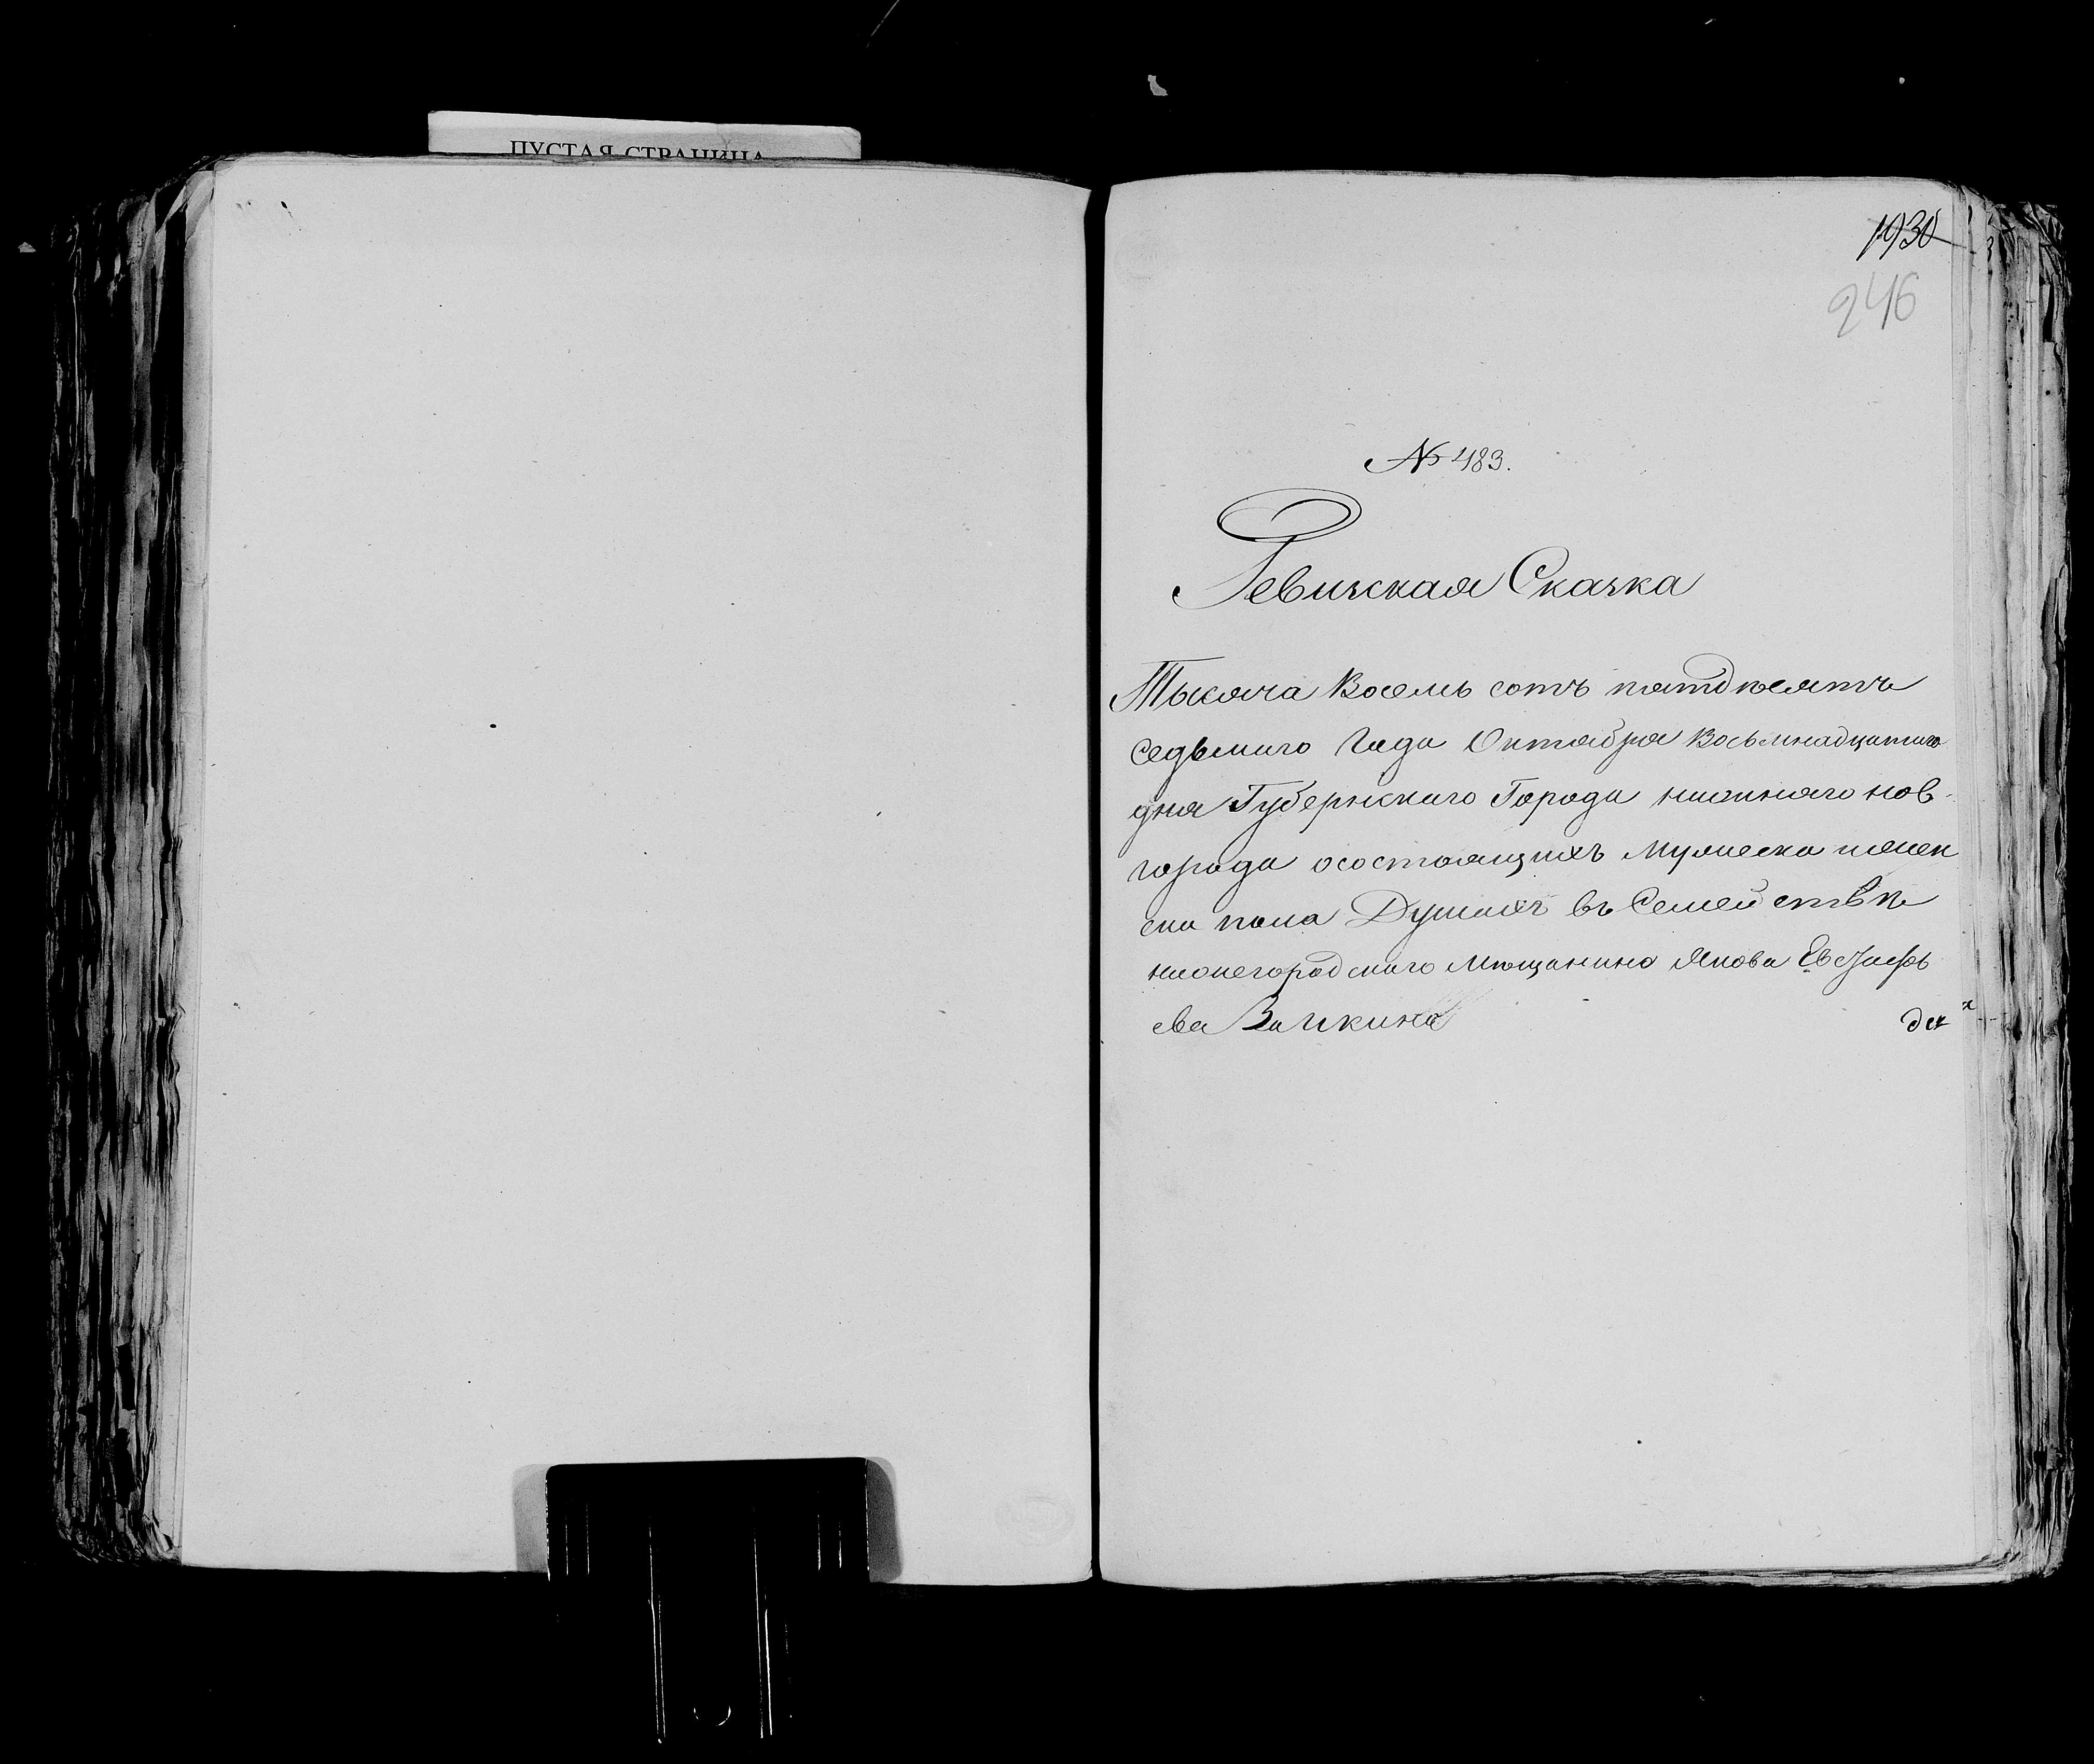 ПУСТАЯ СТРАНИЦА
1930
246
№ 483.
Ревизская Сказка
Тысяча Восемь сотъ пятдѣсятъ
седьмаго Года Октября Восьмнадцатаго
дня Губернскаго Города нижняго нов-
города осостоящихъ мужеска иженск
ска пола Душахъ въ Семействѣ
нижегородскаго мѣщанина Якова
ева